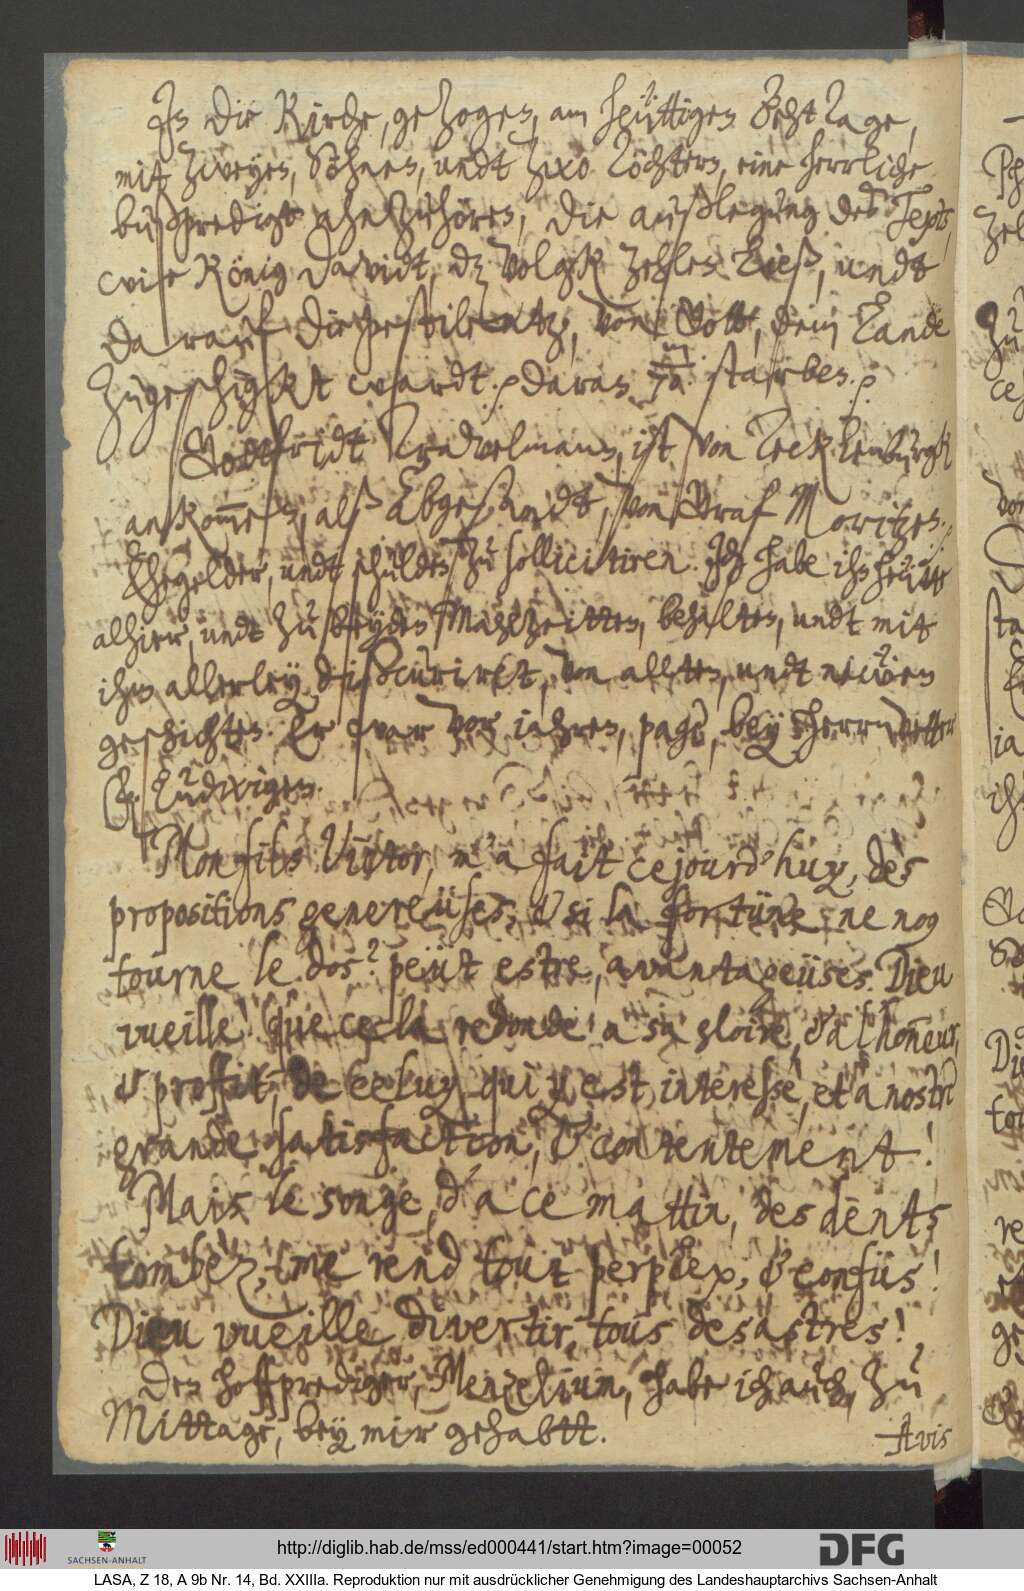 In die Kirche, gezogen, am heüttigen Behttage,
mit zweyen, Söhnen, undt zwo Töchtern, eine herrliche
bußpredigt anzuhören, die außlegung des Texts,
wie König Davidt, dz volgk zehlen ließ, undt
darauf die pestilentz, von Gott, dem Lande
zugeschigkt wardt. daran 70 m. starben.
Gottfridt Tradelmann, ist von Tecklenburgk
ankommen, alß Abgesandt, von Graf Moritzen,
Ehegelder, undt schulden zu sollicitiren. Ich habe ihn heütte
alhier, undt zu beyden Mahlzeitten, behalten, undt mit
ihm allerley dißcuriret, von allten, undt newen
geschichten. Er war vor iahren, page, bey Herrn vetter
F. Ludwigen.
Mon fils Victor, m'a fait cejourd'huy, des
propositions genereüses, & si la fortüne ne nous
tourne le dos? peüt estre, avantageüses. Dieu
vueille! que cecla redonde! a sa gloire, & a l'honneur,
& proffit, de celuy qui y est interessè, et a nostre
grande satisfaction, & contentement!
Mais le songe, d'a ce mattin, des dents
tombèz, me rend tout perplex, & confüs!
Dieu vueille divertir, tous desastres!
Den hoffprediger, Menzelium, habe ich auch, zu
Mittage, bey mir gehabtt.
Avis
http://diglib.hab.de/mss/ed000441/start.htm?image=00052
SACHSEN-ANHALT
DFG
LASA, Z 18, A 9b Nr. 14, Bd. XXIIIa. Reproduktion nur mit ausdrücklicher Genehmigung des Landeshauptarchivs Sachsen-Anhalt